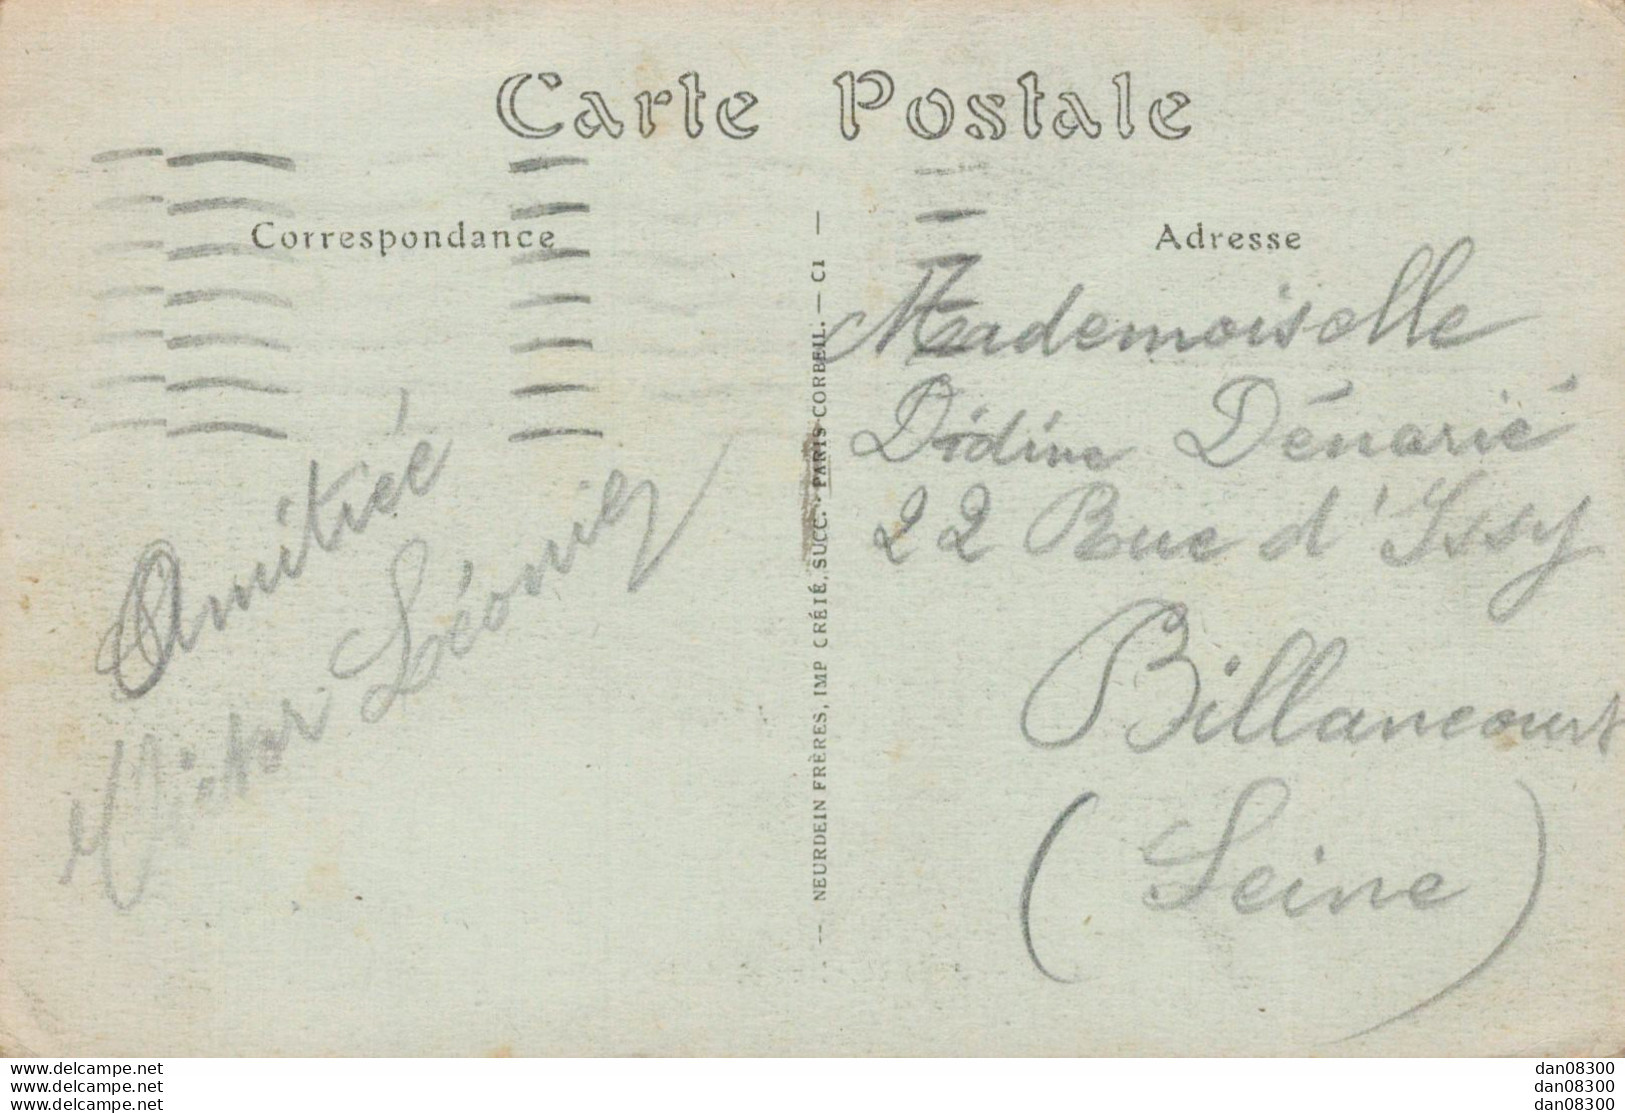 Carte Postale
Correspondance
Amitiée
Victor Léonie
— NEURDEIN FRÈRES, IMP CRÉTÉ, SUCC. - PARIS-CORBEIL. — C1 —
Adresse
Mademoiselle
Didine Dénarié
22 Rue d'Issy
Billancourt
(Seine)
www.delcampe.net
www.delcampe.net
www.delcampe.net
dan08300
dan08300
dan08300